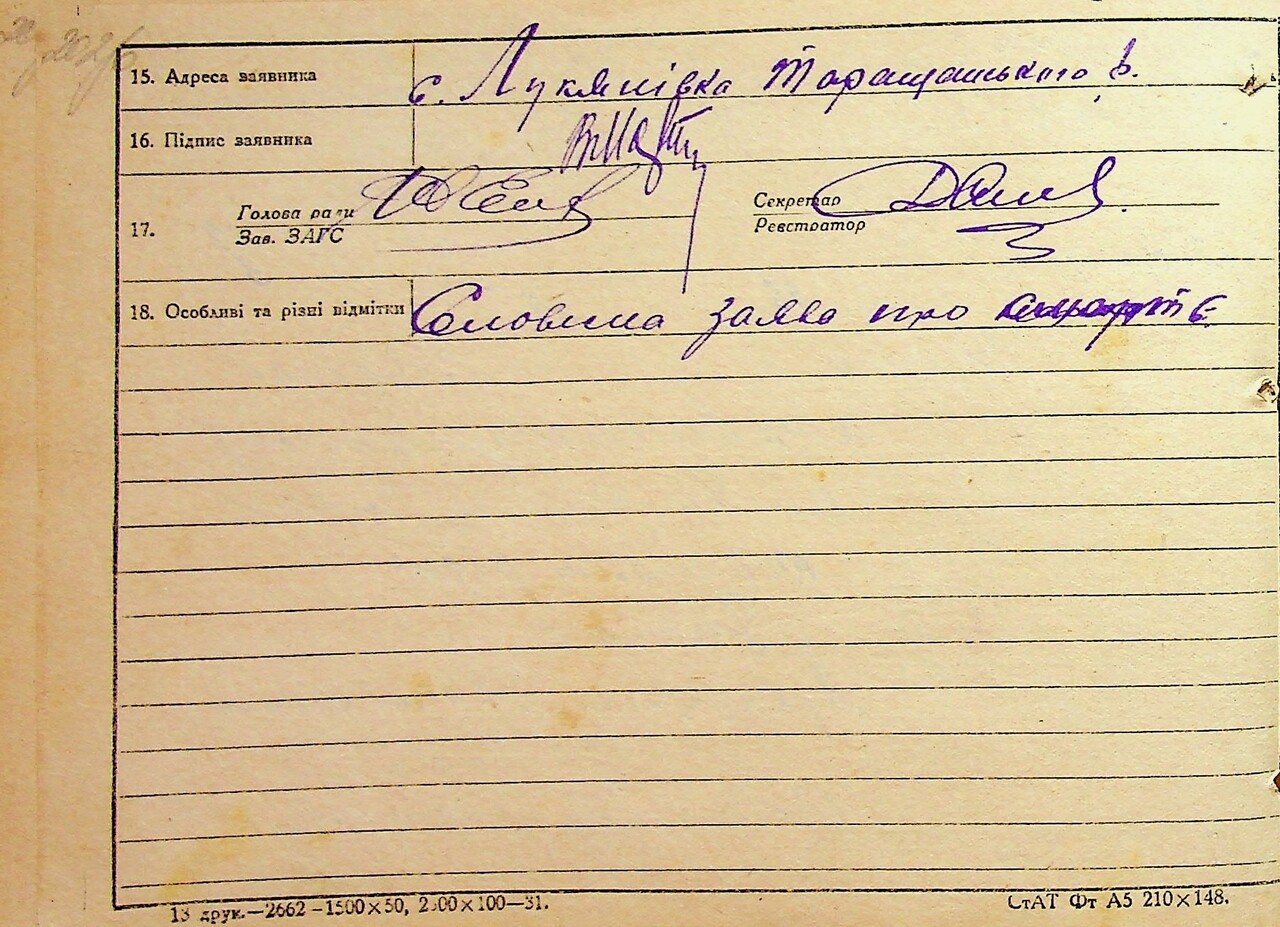 15. Адреса заявника с. Лукянівка Таращанського р.
16. Підпис заявника
17. Голова ради Секретар
Зав. ЗАГС Реєстратор
18. Особливі та різні відмітки Словесна заява про смерть є.
13 друк.—2662 -1500×50, 2500×100—31. СтАТ Фт А5 210×148.